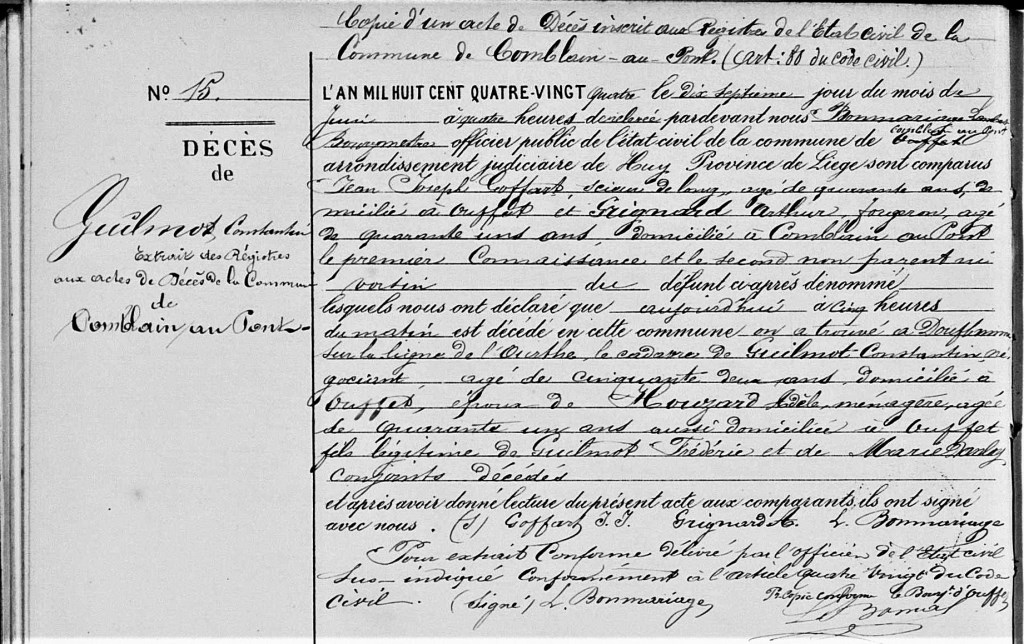 Copie d'un acte de Décès inscrit aux Registres de l'Etat civil de la
Commune de Comblain-au-Pont. (art: 80 du code civil.)
N° 15.
DÉCÈS
de
Guilmot, Constantin
Extrait des Régistres
aux actes de Décès de la Commune
de
Comblain au Pont
L'AN MIL HUIT CENT QUATRE-VINGT quatre le dix septième jour du mois de
Juin à quatre heures de relevée pardevant nous Bonmariage
Bourgmestre officier public de l'état civil de la commune de Comblain au Pont
arrondissement judiciaire de Huy Province de Liège sont comparus
Jean Joseph Goffart, scieur de long, agé de quarante ans, do
micilié à Ouffet et Grignard Arthur, forgeron, agé
de quarante uns ans domicilié à Comblain au Pont
le premier Connaissance et le second non parent ni
voisin du défunt ci-après dénommé
lesquels nous ont déclaré que aujourd'hui à cinq heures
du matin est décédé en cette commune on a trouvé à Douflamme
sur la ligne de l'Ourthe, le cadavre de Guilmot Constantin, né
gociant agé de cinquante deux ans, domicilié à
Ouffet, époux de Houzard Adèle, ménagère, agée
de quarante un ans aussi domiciliée à Ouffet
fils légitime de Guilmot Frédéric et de Marie
conjoints décédés
et après avoir donné lecture du présent acte aux comparants, ils ont signé
avec nous. (S) Goffart J.J. Grignard A. L. Bonmariage
Pour extrait Conforme délivré par l'officier de l'Etat civil
sus-indiqué conformément à l'article quatre vingt du Code
civil. (signé) L. Bonmariage
Pr. Copie conforme le Bourg. d'Ouffet